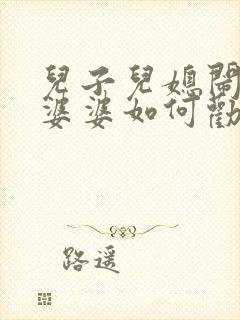 兒子兒媳鬧
婆婆如何勸
路遥